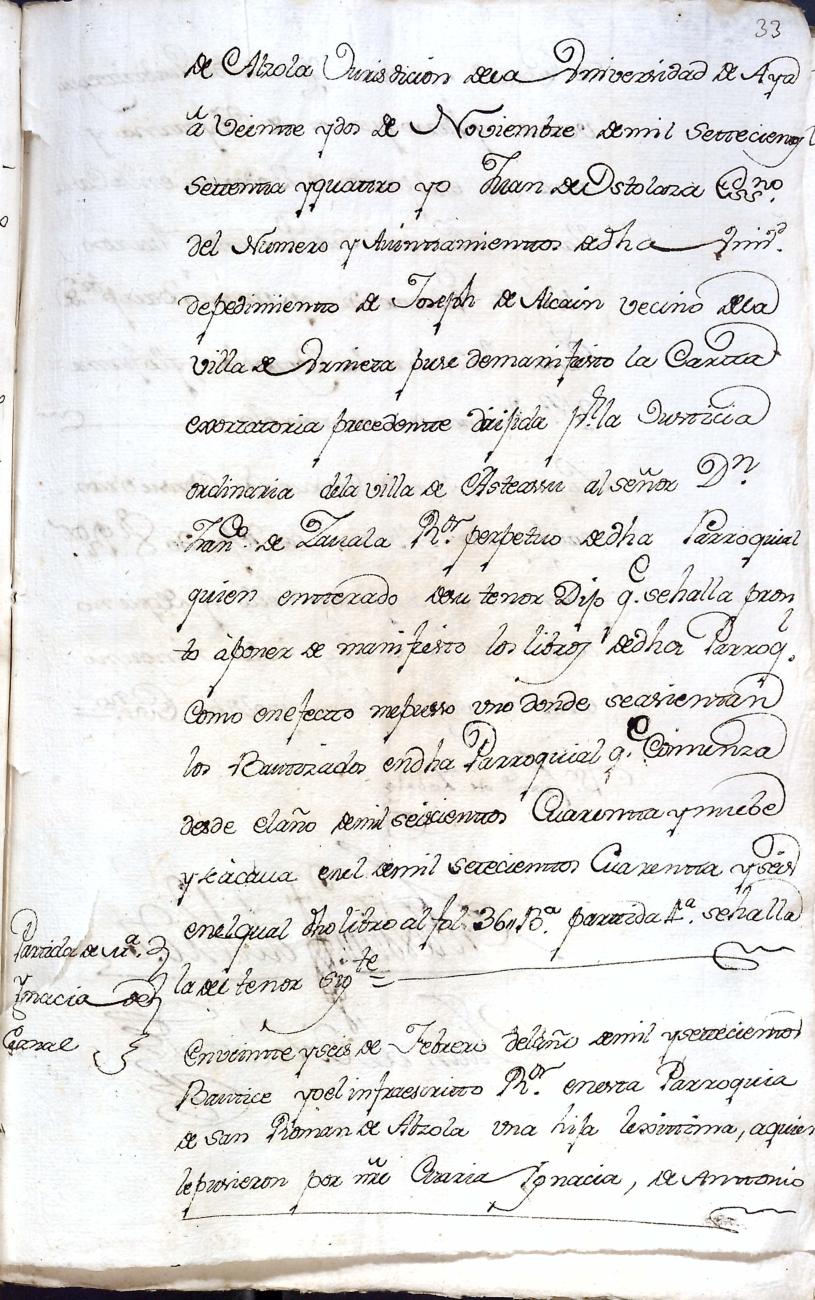 33
de Alzola Jurisdicion dela Universidad de Aya
â Veinte y dos de Noviembre de mil settecientos
settenta y quattro yo Juan de Ostolaza Essno.
del Numero y Aiunttamientto de dha Unid.
de pedimientto de Joseph de Alcain vecino dela
villa de Urnieta puse de manifiesto la Cartta
exortatoria precedentte dirijida pr. la Justicia
ordinaria de la villa de Asteassu al señor Dn.
Franco. de Zauala Ror. perpetuo de dha Parroquial
quien entterado de su tenor Dijo qe. se halla pron
to â poner de manifiesto los libros de dha Parroql.
Como en efectto me puso uno donde se asientan
los Bautizados en dha Parroquial qe. Comienza
desde el año de mil seiscienttos Cuarentta y nuebe
y se âcava en el de mil setecienttos Cuarentta y seis
en el qual dho libro al fol. 36 Ba. parttida 4a. se halla
la del tenor sigte =
Partida de Ma.
Ygnacia de
En veintte y seis de Febrero del año de mil y settecienttos
Bautice yo el infraescritto Ror. en esta Parroquia
de san Roman de Alzola una hija lexittima, a quien
le pusieron por nre Maria Ygnacia, de Anttonio